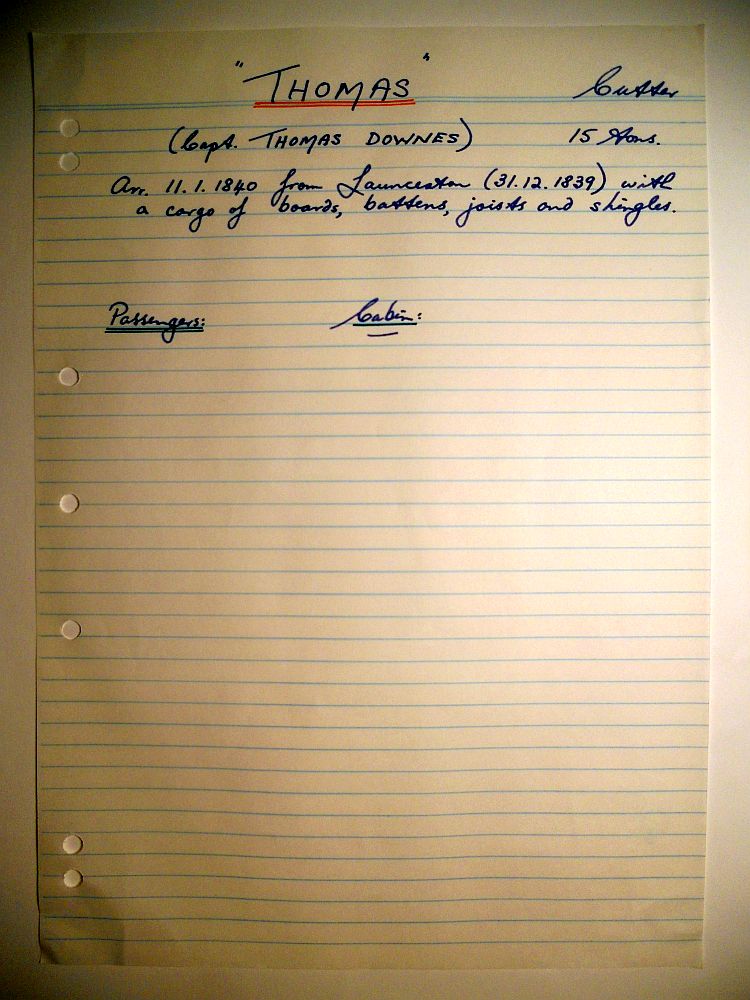 "THOMAS" Cutter
(Capt. THOMAS DOWNES) 15 tons.
Arr. 11.1.1840 from Launceston (31.12.1839) with
a cargo of boards, battens, joists and shingles.
Passengers: Cabin: